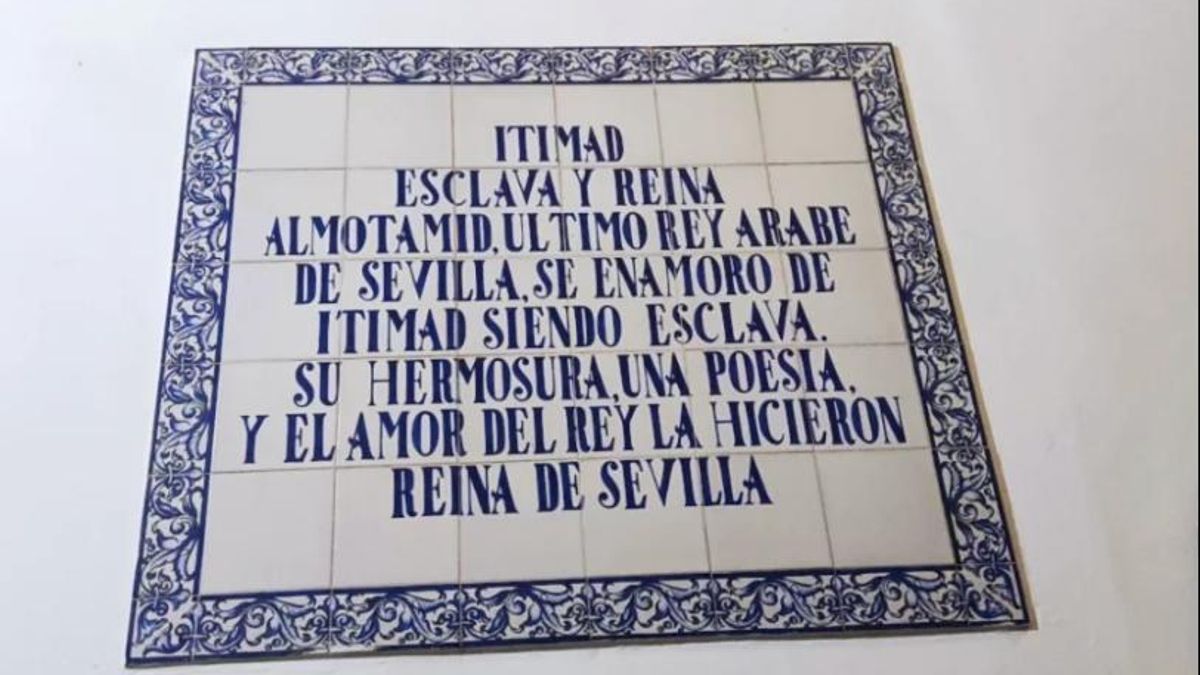 ITIMAD
ESCLAVA Y REINA
ALMOTAMID, ULTIMO REY ARABE
DE SEVILLA, SE ENAMORO DE
ITIMAD SIENDO ESCLAVA.
SU HERMOSURA, UNA POESIA,
Y EL AMOR DEL REY LA HICIERON
REINA DE SEVILLA